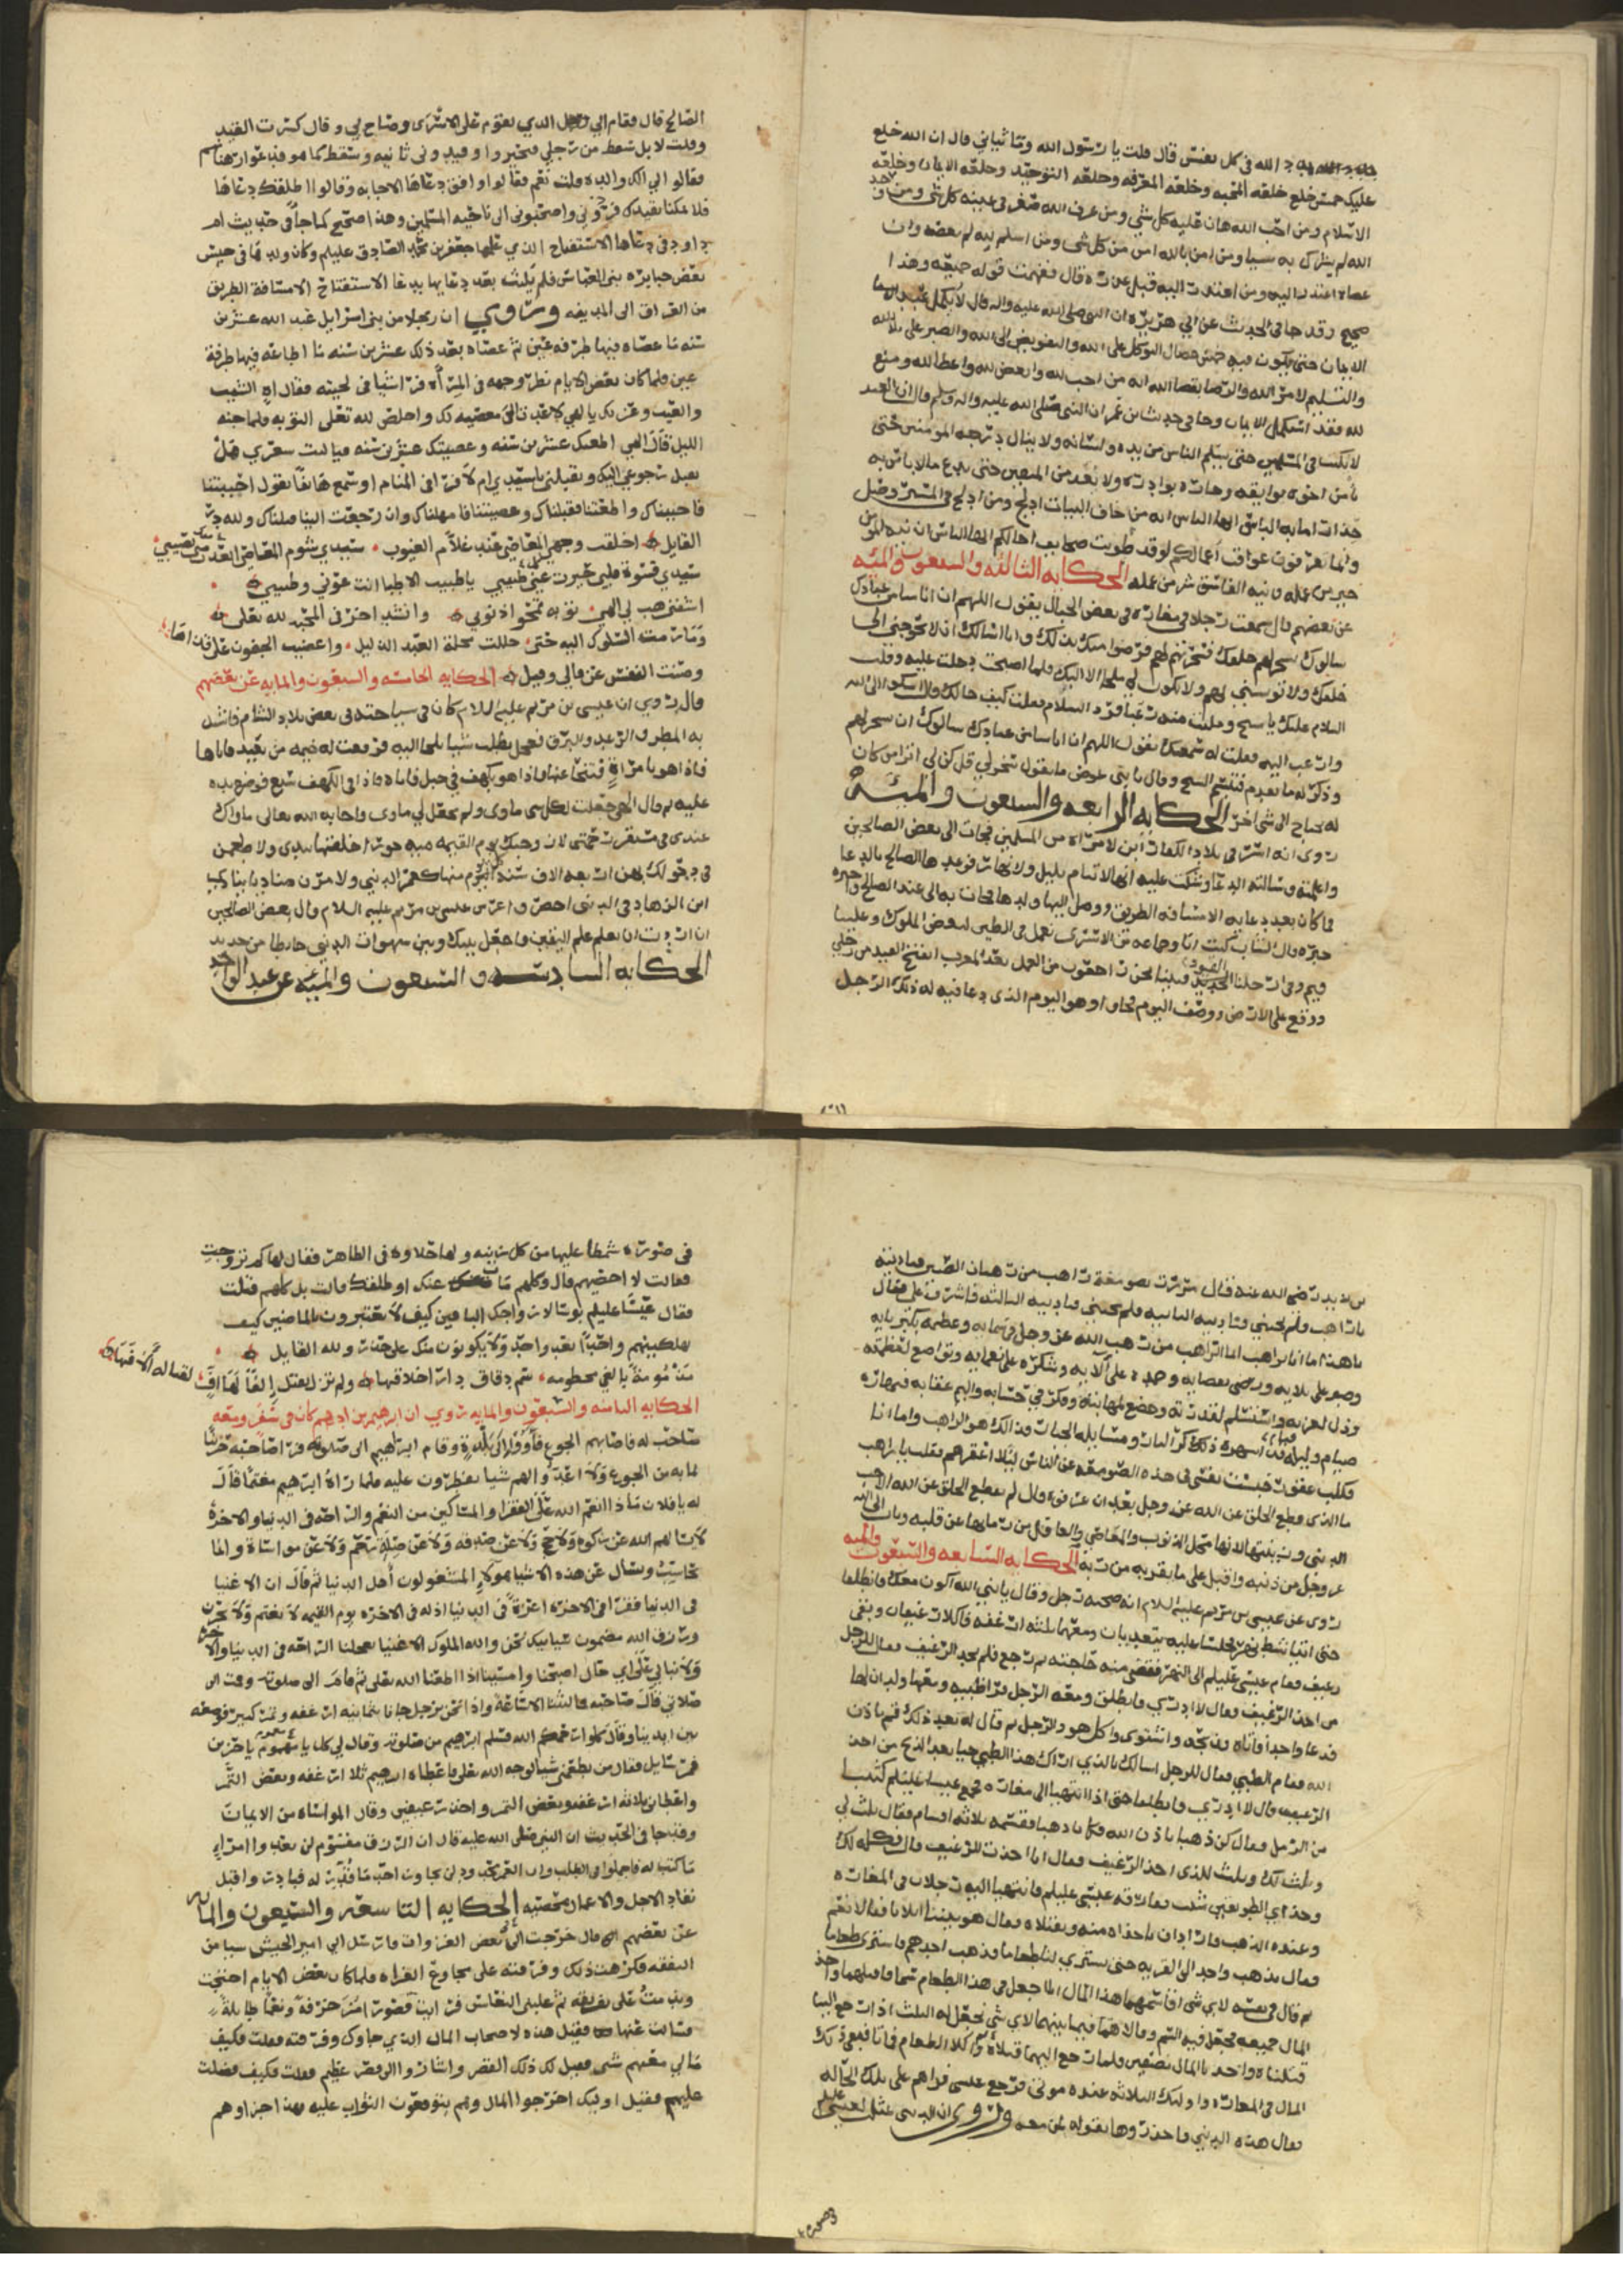 الله في كل نفس قال قلت يا رسول الله وما ثيابي قال ان الله خلع
عليك خمس خلع خلعة المحبه وخلعة المعرفه وخلعة التوحيد وخلعة الايمان وخلعة
الاسلام ومن احب الله هان عليه كل شي ومن عرف الله صغر في عينه كل شي ومن وحد
الله لم يشرك به شيا ومن امن بالله امن من كل شي ومن اسلم لله لم يعصه وان
عصاه اعتذر اليه ومن اعتذر اليه قبل عذره قال ففهمت قوله جميعه وهذا
صحيح وقد جا في الحديث عن ابي هريره ان النبي صلى الله عليه واله قال لا يكمل عبد
الايمان حتى يكون فيه خمس خصال التوكل على الله والتفويض الى الله والصبر على بلا الله
والتسليم لامر الله والرضا بقضا الله انه من احب لله وابغض لله واعطا لله ومنع
لله فقد استكمل الايمان وجا في حديث ابن عمر ان النبي صلى الله عليه واله وسلم قال ان العبد
لا يكتب في المسلمين حتى يسلم الناس من يده ولسانه ولا ينال درجه المومنين حتى
يأمن اخوه بوايقه وجاره بوادره ولا يعد من المتقين حتى يدع ما لا باس به
حذرا مما به الباس ايها الناس انه من خاف البيات ادلج ومن ادلج في المسير وصل
وانما تعرفون عواقب اعمالكم لو قد طويت صحايف اجالكم ايها الناس ان نيه المومن
خير من عمله ونيه الفاسق شر من عمله الحكايه الثالثه والسبعون والميه
عن بعضهم قال سمعت رجلا في مغاره في بعض الجبال يقول اللهم ان اناسا من عبادك
سالوك تسخر لهم خلقك فسخرتهم لهم فرضوا منك بذلك وانا اسالك ان لا تحوجني الى
خلقك ولا تونسني بهم ولا يكون لي ملجا الا اليك فلما اصبحت دخلت عليه وقلت
السلام عليك يا شيخ وملئت منه رعبا فرد السلام فقلت كيف حالك قال اشكوا الى الله
وارغب اليه فقلت له سمعتك تقول اللهم ان اناسا من عبادك سالوك ان تسخر لهم
وذكرت له ما تقدم فتبسم الشيخ وقال يا بني عوض ما تقول سخر لي قل كن لي اتراه من كان
له يحتاج الى شي اخر الحكايه الرابعه والسبعون والميه
روى انه اسر في بلاد الكفار ابن لامراه من المسلمين فجات الى بعض الصالحين
واعلمته وسالته الدعا وشكت عليه انها لا تنام بليل ولا نهار فوعدها الصالح بالدعا
فما كان بعد دعايه الا مسافه الطريق ووصل اليها ولدها فجات به الى عند الصالح واخبره
خبره قال الشاب كنت انا وجماعه من الاسرى نعمل في الطين لبعض الملوك وعلينا
قيم وفي ارجلنا القيود فبينا نحن راجعون من العمل بعد المغرب انفتح القيد من رجلي
ووقع على الارض ووصف اليوم فجاوا وهو اليوم الذي دعا فيه له ذلك الرجل
الصالح قال فقام الي الرجل الذي يقوم على الاسرى وصاح بي وقال كسرت القيد
وقلت لا بل سقط من رجلي فتحيروا وقيدوني ثانيه وسقط كما هو فدعوا رهبانهم
فقالوا الي الك والده قلت نعم فقالوا وافق دعاها الاجابه وقالوا اطلقك دعاها
فلا يمكنا نقيدك فزودوني واصحبوني الى ناحيه المسلمين وهذا صحيح كما جا في حديث ام
داود في دعاها الاستفتاح الذي علمها جعفر بن محمد الصادق عليلم وكان ولدها في حبس
بعض جبابره بني العباس فلم يلبث بعد دعايها بدعا الاستفتاح الا مسافه الطريق
من العراق الى المدينه وروي ان رجلا من بني اسرايل عبد الله عشرين
سنه ما عصاه فيها طرفه عين ثم عصاه بعد ذلك عشرين سنه ما اطاعه فيها طرفة
عين فلما كان بعض الايام نظر وجهه في المرأه فرا شيبا في لحيته فقال اه الشيب
والعيب وعزتك يا الهي لا عدت الى معصيتك واخلص لله تعلى التوبه فلما جنه
الليل قال الهي اطعتك عشرين سنه وعصيتك عشرين سنه فيا ليت شعري هل
تقبل رجوعي اليك وتقبلني يا سيدي ام لا فرا في المنام او سمع هاتفا يقول احببتنا
فاحببناك واطعتنا فقبلناك وعصيتنا فامهلناك وان رجعت الينا صلناك ولله در
القايل اخلقت وجهي المعاصي عند علام الغيوب سيدي شوم المعاصي
سيدي قسوة قلبي حيرت عني طبيبي يا طبيب الاطبا انت عوني وطبيبي
اشفني هب لي الهي توبه تمحو ذنوبي وانشد اخر في المحبه لله تعلى
ومارست السلوك اليه حتى حللت محلة العبد الذليل واغضيت الجفون على قذاها
وصنت النفس عن قال وقيل الحكايه الخامسه والسبعون والمايه عن بعضهم
قال روي ان عيسى بن مريم عليه السلام كان في سياحته في بعض بلاد الشام فاشتد
به المطر والرعد والبرق فجعل يطلب شيا يلجا اليه فرفعت له خيمه من بعيد فاتاها
فاذا هو بامراة فتنحا عنها فاذا هو بكهف في جبل فاتاه فاذا في الكهف سبع فوضع يده
عليه ثم قال الهي جعلت لكل شي ماوى ولم تجعل لي ماوى فاجابه الله تعالى ماواك
عندي في مستقر رحمتي لازوجنك يوم القيمه ميه حورا خلقتها بيدي ولاطعمن
في عرسك اربعه الاف سنه اليوم منها كعمر الدنيا ولامرن مناديا ينادي
اين الزهاد في الدنيا احضروا عرس عيسى بن مريم عليه السلام وقال بعض الصالحين
ان اردت ان تعلم علم اليقين فاجعل بينك وبين شهوات الدنيا حايطا من حديد
الحكايه السادسه والسبعون والميه عن عبد الواحد
بن زيد رضي الله عنه قال مررت بصومعة راهب من رهبان الصين فناديته
يا راهب فلم يجبني فناديته الثانيه فلم يجبني فناديته الثالثه فاشرف علي فقال
يا هذا ما انا براهب انما الراهب من رهب الله عز وجل في سمايه وعظمه بكبريايه
وصبر على بلايه ورضي بقضايه وحمده على آلايه وشكره على نعمايه وتواضع لعظمته
وذل لعزته واستسلم لقدرته وخضع لمهابته وفكر في حسابه واليم عقابه فنهاره
صيام وليله قيام قد اسهره ذكر النار ومسايله الجبار فذلك هو الراهب واما انا
فكلب عقور حبست نفسي في هذه الصومعه عن الناس ليلا اعقرهم فقلت يا راهب
ما الذي قطع الخلق عن الله عز وجل بعد ان عرفوه قال لم يقطع الخلق عن الله الا حب
الدنيا وزينتها لانها محل الذنوب والمعاصي والعاقل من رما بها عن قلبه وتاب الى الله
عز وجل من ذنبه واقبل على ما يقربه من ربه الحكايه السابعه والسبعون والميه
روي عن عيسى بن مريم عليه السلام انه صحبه رجل وقال يا نبي الله اكون معك فانطلقا
حتى اتيا شط نهر فجلسا عليه يتغديان ومعهما ثلثه ارغفه فاكلا رغيفان وبقي
رغيف فقام عيسى عليلم الى النهر فقضى منه حاجته ثم رجع فلم يجد الرغيف فقال للرجل
من اخذ الرغيف فقال لا ادري فانطلق ومعه الرجل فرا ظبيه ومعها ولدان لها
فدعا واحدا فاتاه وذبحه واشتوى واكل هو والرجل ثم قال له بعد ذلك قم باذن
الله فقام الظبي فقال للرجل اسالك بالذي اراك هذا الظبي حيا بعد الذبح من اخذ
الرغيف قال لا ادري فانطلقا حتى اذا انتهيا الى مغاره فجمع عيسى عليلم كثيبا
من الرمل فقال كن ذهبا باذن الله فكان ذهبا فقسمه ثلاثه اقسام فقال ثلث لي
وثلث لك وثلث للذي اخذ الرغيف فقال انا اخذت الرغيف قال فكله لك
وعنده الذهب فارادان ياخذاه منه ويقتلاه فقال هو بيننا اثلاثا فقالا نعم
فقال يذهب واحد الى القريه حتى يشتري لنا طعاما فذهب احدهم فاشترى طعاما
ثم قال في نفسه لاي شي اقاسمهما هذا المال انا اجعل في هذا الطعام سما فاقتلهما واخذ
المال جميعه فجعل فيه السم وقالا هما فيما بينهما لاي شي نجعل له الثلث اذا رجع الينا
قتلناه واخذنا المال نصفين فلما رجع اليهما قتلاه واكلا الطعام فماتا فبقي ذلك
المال في المغاره واوليك الثلاثه عنده موتى فرجع عيسى فراهم على تلك الحاله
فقال هذه الدنيا فاحذروها يقوله لمن معه وروي ان الدنيا تمثلت لعيسى
في صوره شمطا عليها من كل زينه ولها حلاوه في الظاهر فقال لها كم تزوجت
فقالت لا احصيهم قال وكلهم مات عنك او طلقك قالت بل كلهم قتلت
فقال عيسا عليلم بوسا لازواجك الباقين كيف لا يعتبرون بالماضين كيف
تهلكينهم واحدا بعد واحد ولا يكونون منك على حذر ولله القايل
الحكايه الثامنه والسبعون والمايه روي ان ابرهيم بن ادهم كان في سفر ومعه
صاحب له فاصابهم الجوع فآووا الى بلدة وقام ابراهيم الى صلوته فرا صاحبه حزينا
لما به من الجوع ولا غدا والهم شيا يفطرون عليه فلما راه ابرهيم مغتما قال
له يا فلان ماذا انعم الله تعلى على الفقرا والمساكين من النعم والراحه في الدنيا والاخره
لا يسالهم الله عن زكوه ولا حج ولا عن صدقه ولا عن صلة رحم ولا عن مواساة وانما
يحاسب ويسال عن هذه الاشيا هولا المشغولون اهل الدنيا ثم قال ان الاغنيا
في الدنيا فقرا في الاخره اعزة في الدنيا اذله في الاخره يوم القيمه لا تغتم ولا تحزن
ورزق الله مضمون سياتيك نحن والله الملوك الاغنيا تعجلنا الراحه في الدنيا والاخره
ولا نبالي على اي حال اصبحنا وامسينا اذا اطعنا الله تعلى ثم قام الى صلوته وقمت الى
صلاتي قال صاحبه فما لبثنا الا ساعة واذا نحن برجل جانا بثمانيه ارغفه وتمر كثير فوضعه
بين ايدينا وقال كلوا رحمكم الله فسلم ابرهيم من صلوته وقال لي كل يا مغموم يا حزين
فمر سايل فقال من يطعمني شيا لوجه الله تعلى فاعطاه ابرهيم ثلاث ارغفه وبعض التمر
واعطاني ثلاثه ارغفه وبعض التمر واخذ رغيفين وقال المواساه من الايمان
وقد جا في الحديث ان النبي صلى الله عليه قال ان الرزق مقسوم لن يعدوا امراء
ما كتب له فاجملوا في الطلب وان العمر محدود لن يجاوز احد ما قدر له فبادروا قبل
نفاد الاجل والاعمال محصيه الحكايه التاسعه والسبعون والمايه
عن بعضهم انه قال خرجت الى بعض الغزوات فارسل الي امير الجيش شيا من
النفقه فكرهت ذلك وفرقته على محاويج الغزاه فلما كان بعض الايام احتجت
وندمت على تفريقه ثم غلبني النعاس فرايت قصورا مزخرفة ونعما جليلة
فسالت عنها فقيل هذه لاصحاب المال الذي جاوك وفرقته فقلت فكيف
مالي معهم شي فقيل لك ذلك القصر واشار والى قصر عظيم فقلت فكيف فضلت
عليهم فقيل اوليك اخرجوا المال وهم يتوقعون الثواب عليه فهذا جزاوهم